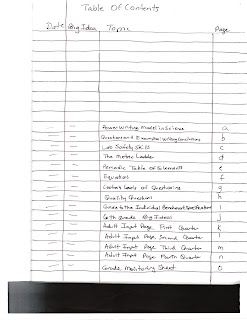 Table Of Contents
Date Big Idea Topic Page
— — Power Writing Model in Science a
— — Question and Exam Writing Conventions b
— — Lab Safety Skills c
— — The Metric Ladder d
— — Periodic Table of Elements e
— — Equations f
— — Costa's Levels of Questioning g
— — Quality Questions h
— — Guide to The Individual Benchmark Specifications i
— — 6th Grade Big Ideas j
— — Adult Input Page First Quarter k
— — Adult Input Page Second Quarter l
— — Adult Input Page Third Quarter m
— — Adult Input Page Fourth Quarter n
— — Grade Monitoring Sheet o